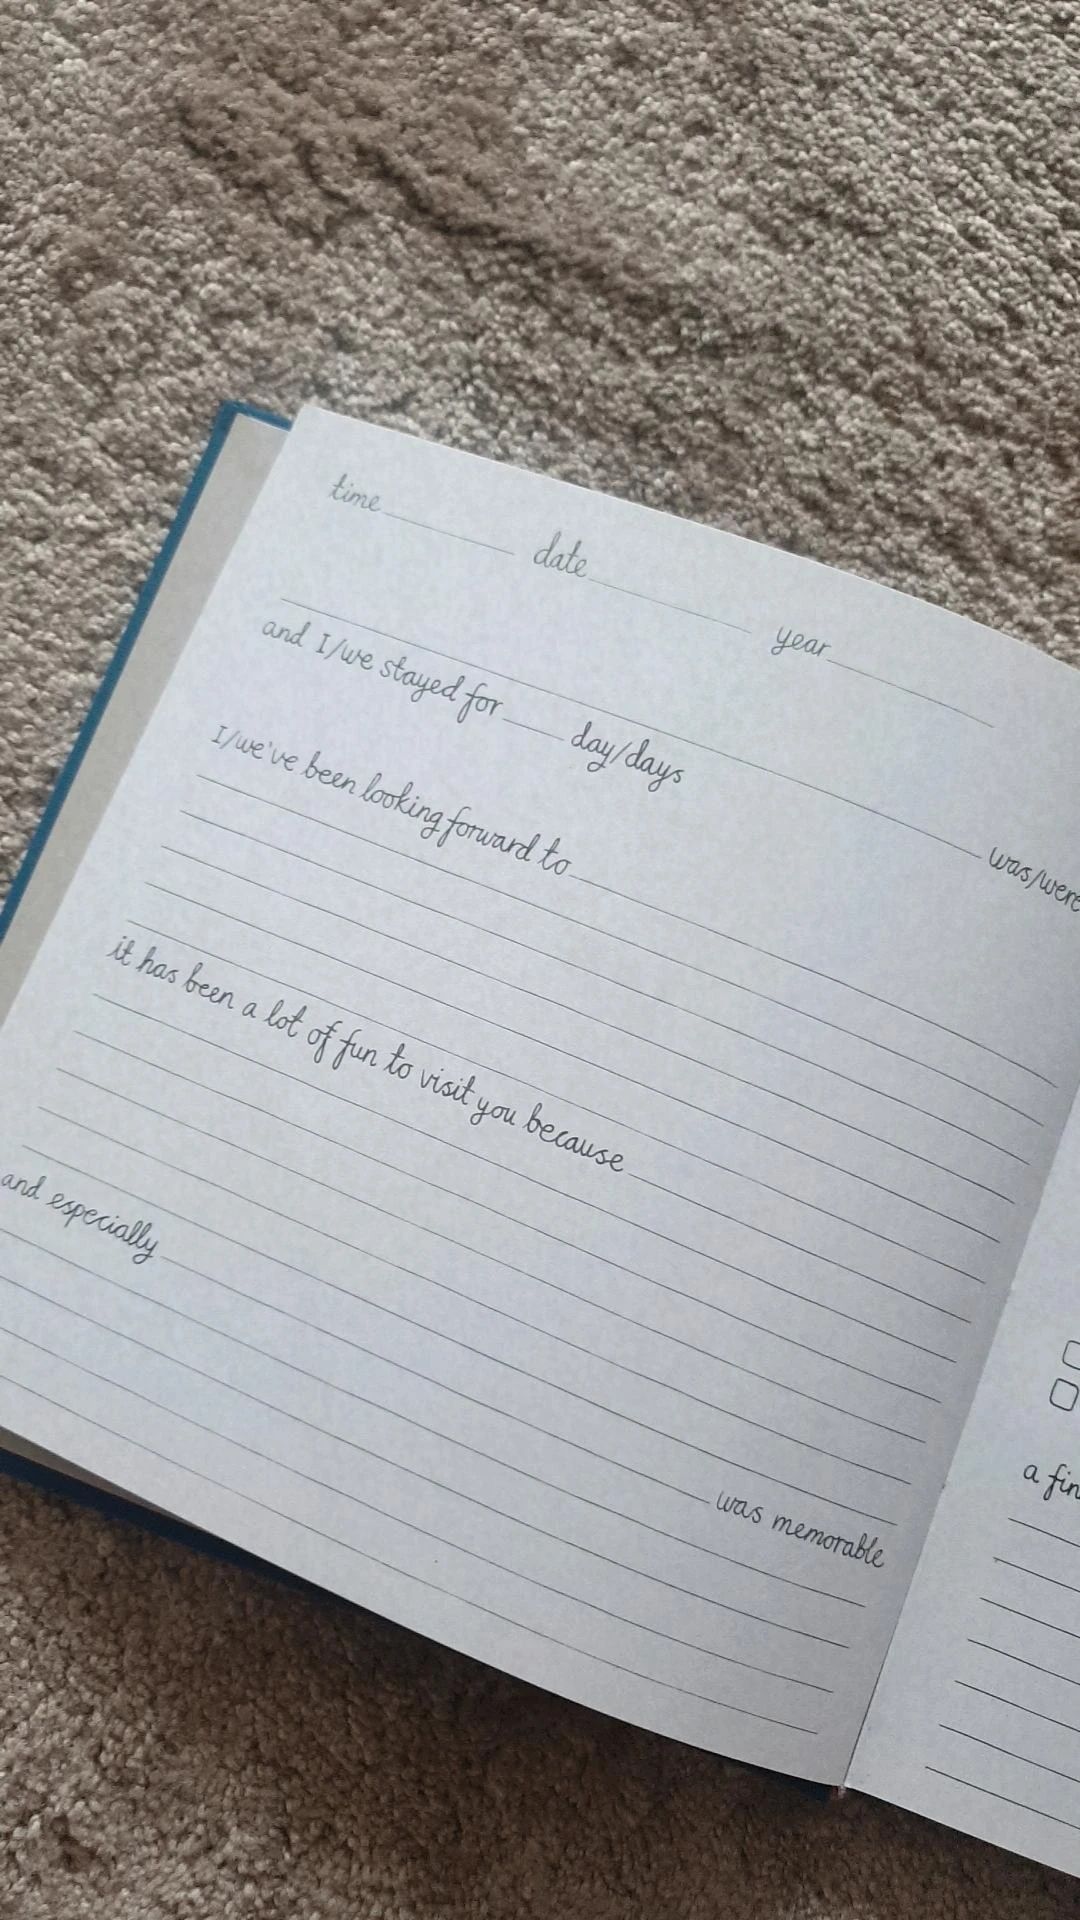 time date year
was/were
and I/we stayed for day/days
I/we've been looking forward to
it has been a lot of fun to visit you because
and especially
was memorable
a fin